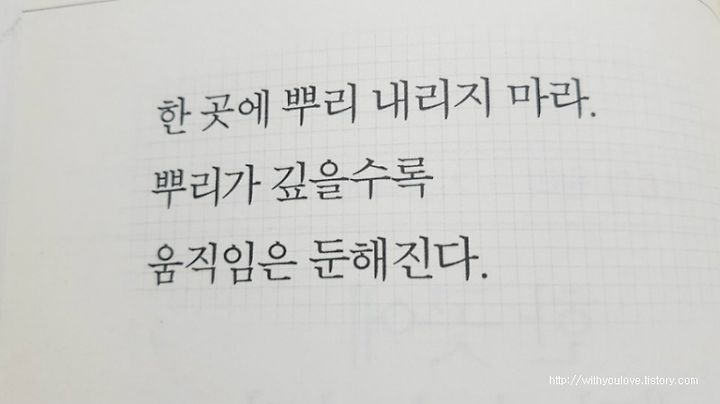 한 곳에 뿌리 내리지 마라.
뿌리가 깊을수록
움직임은 둔해진다.
http://withyoulove.tistory.com